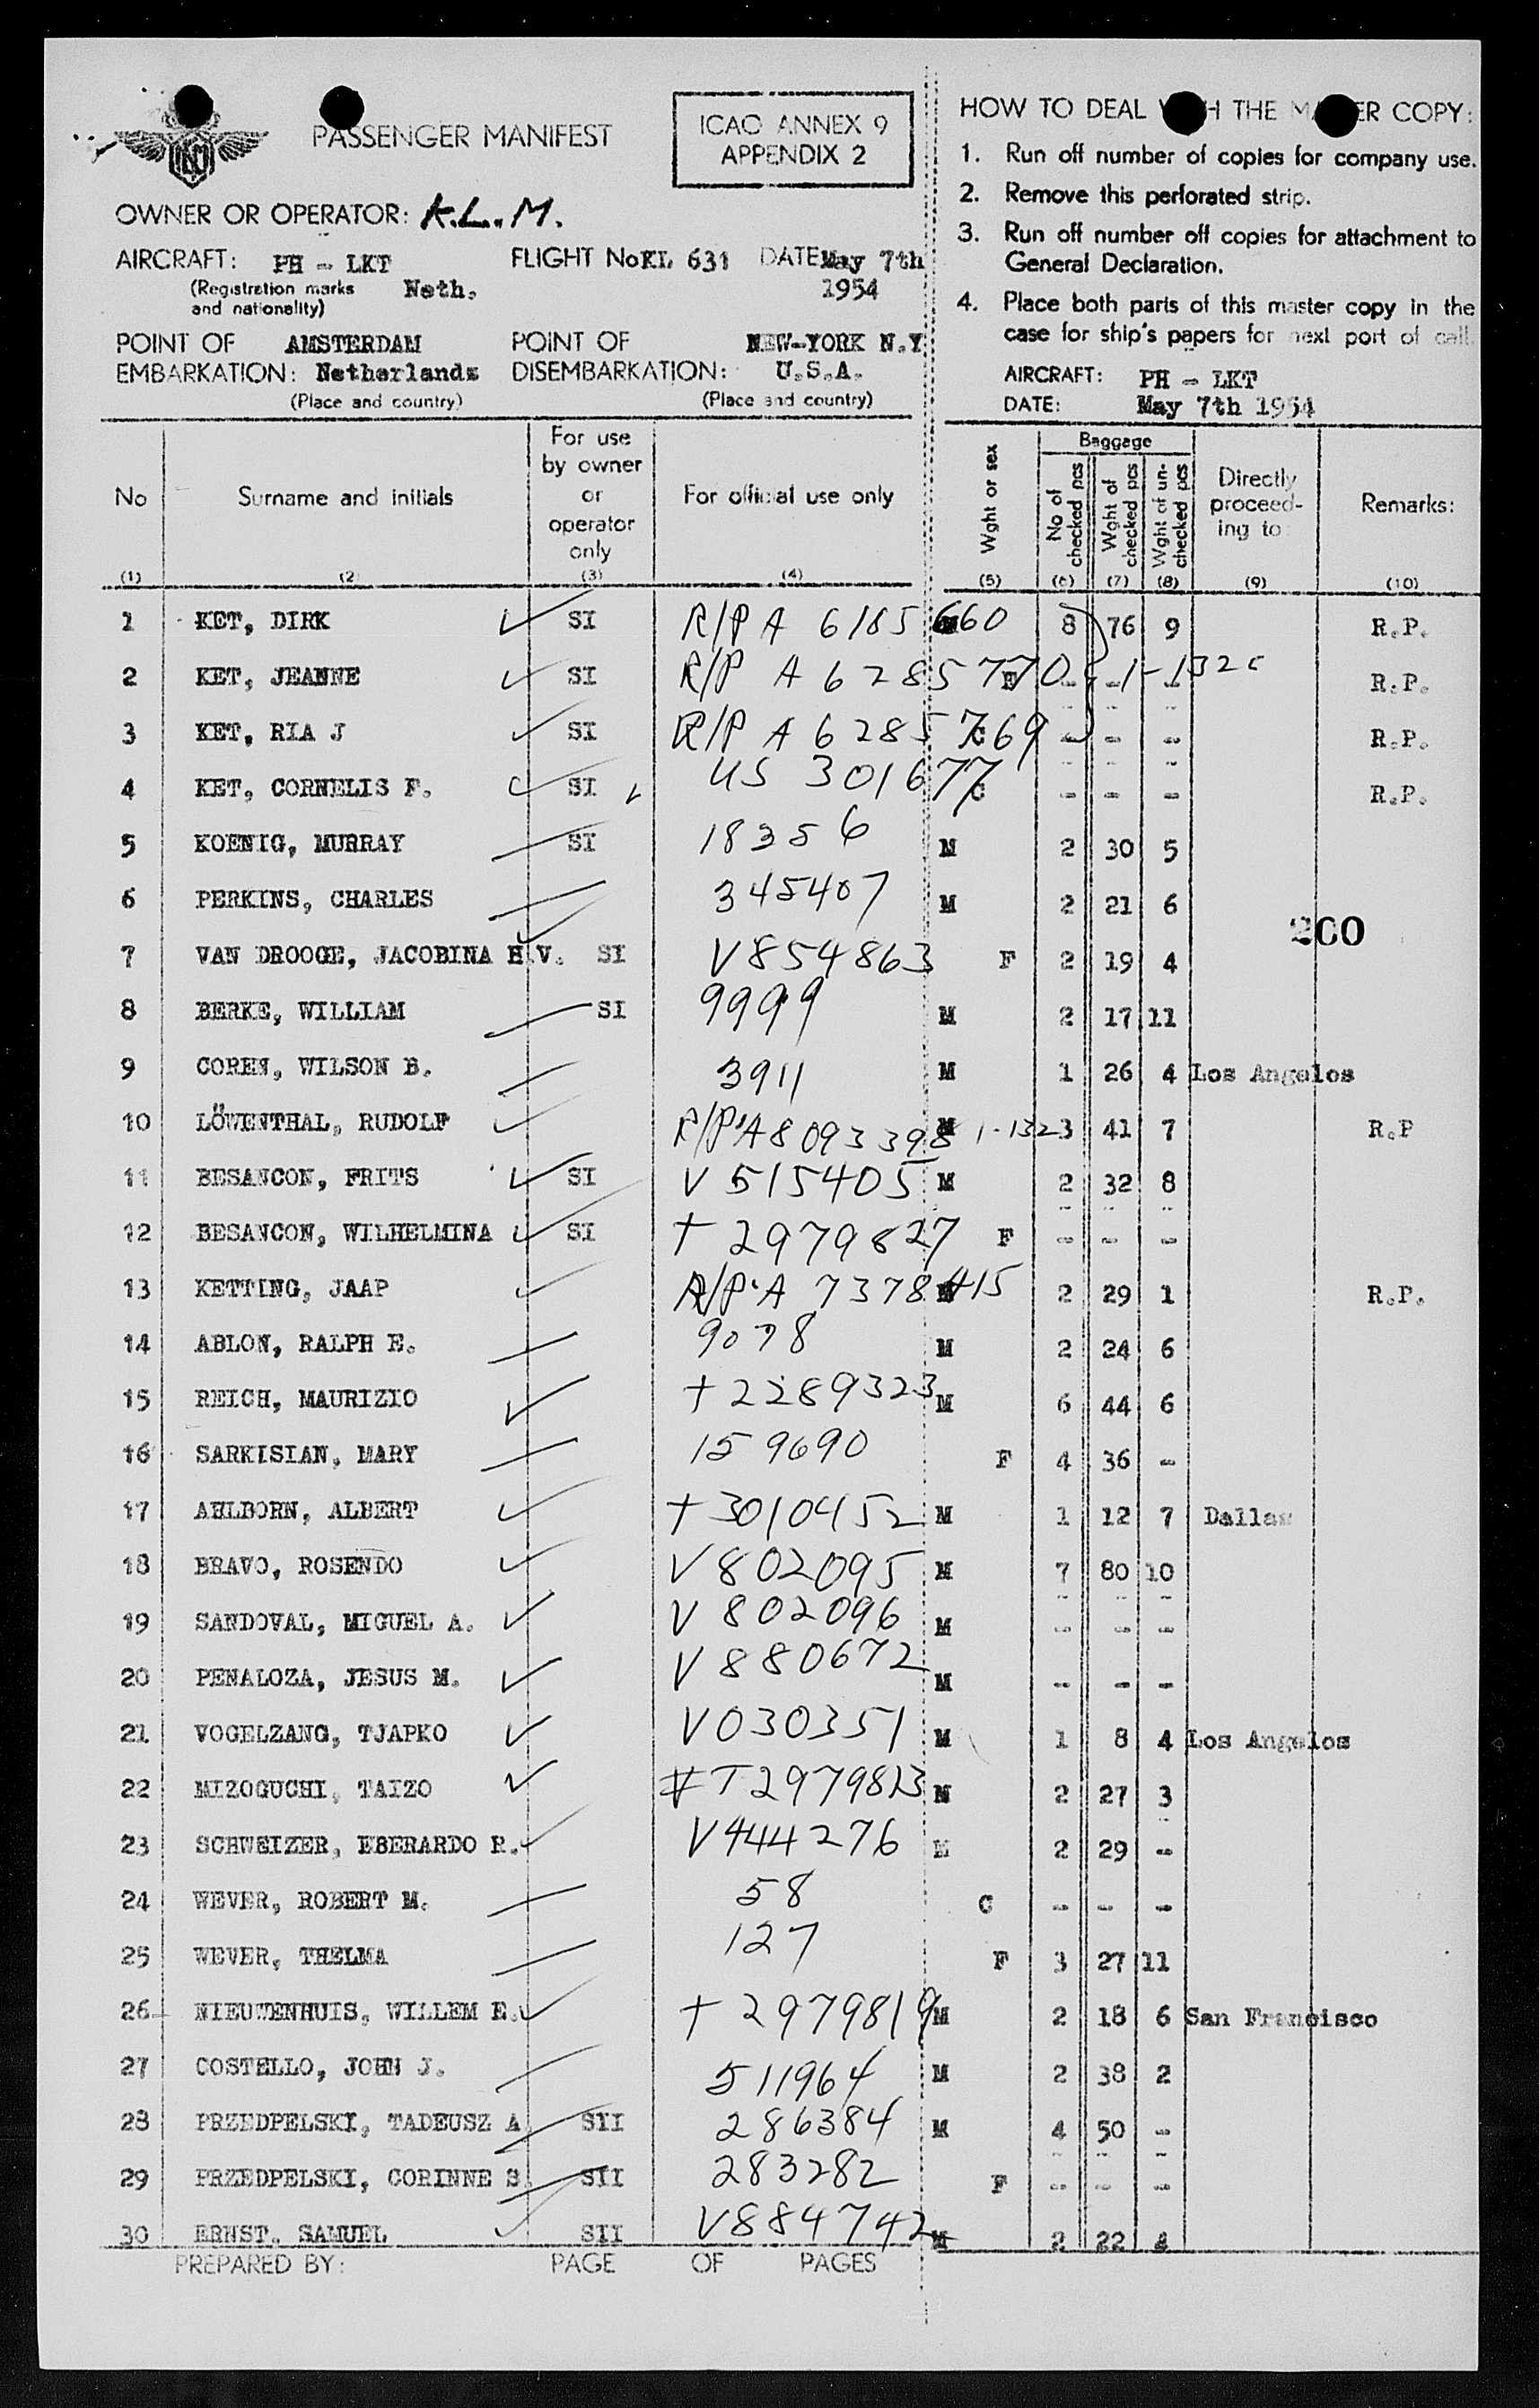 PASSENGER MANIFEST
ICAO ANNEX 9
APPENDIX 2
OWNER OR OPERATOR: K.L.M.
AIRCRAFT: PH - LKT FLIGHT No KL 631 DATE May 7th
(Registration marks Neth. 1954
and nationality)
POINT OF AMSTERDAM POINT OF NEW-YORK N.Y
EMBARKATION: Netherlands DISEMBARKATION: U.S.A.
(Place and country) (Place and country)
HOW TO DEAL THE COPY:
1. Run off number of copies for company use.
2. Remove this perforated strip.
3. Run off number off copies for attachment to
General Declaration.
4. Place both parts of this master copy in the
case for ship's papers for next port of call.
AIRCRAFT: PH - LKT
DATE: May 7th 1954
No Surname and initials For use by owner or operator only For official use only Wght or sex Baggage No of checked pcs Wght of checked pcs Wght of un-checked pcs Directly proceed-ing to: Remarks:
(1) (2) (3) (4) (5) (6) (7) (8) (9) (10)
1 KET, DIRK SI R/P A 6185 660 8 76 9 R.P.
2 KET, JEANNE SI R/P A 6285770 F - - 1-132 R.P.
3 KET, RIA J SI R/P A 6285769 C - - - R.P.
4 KET, CORNELIS F. SI US 301677 C - - - R.P.
5 KOENIG, MURRAY SI 18356 M 2 30 5
6 PERKINS, CHARLES 345407 M 2 21 6
200
7 VAN DROOGE, JACOBINA H.V. SI V854863 F 2 19 4
8 BERKE, WILLIAM SI 9999 M 2 17 11
9 COREN, WILSON B. 3911 M 1 26 4 Los Angelos
10 LÖWENTHAL, RUDOLF R/P A8093398 M 1-132 3 41 7 R.P
11 BESANCON, FRITS SI V 515405 M 2 32 8
12 BESANCON, WILHELMINA SI T 2979827 F - - -
13 KETTING, JAAP R/P A 7378415 2 29 1 R.P.
14 ABLON, RALPH E. 9078 M 2 24 6
15 REICH, MAURIZIO T 2289323 M 6 44 6
16 SARKISIAN, MARY 159690 F 4 36 -
17 AHLBORN, ALBERT T 3010452 M 1 12 7 Dallas
18 BRAVO, ROSENDO V 802095 M 7 80 10
19 SANDOVAL, MIGUEL A. V 802096 M - - -
20 PENALOZA, JESUS M. V 880672 M - - -
21 VOGELZANG, TJAPKO V030351 M 1 8 4 Los Angelos
22 MIZOGUCHI, TAIZO T2979813 M 2 27 3
23 SCHWEIZER, EBERARDO R. V444276 M 2 29 -
24 WEVER, ROBERT M. 58 C - - -
25 WEVER, THELMA 127 F 3 27 11
26 NIEUWENHUIS, WILLEM E. T 2979819 M 2 18 6 San Francisco
27 COSTELLO, JOHN J. 511964 M 2 38 2
28 PRZEDPELSKI, TADEUSZ A. SII 286384 M 4 50 -
29 PRZEDPELSKI, CORINNE S. SII 283282 F - - -
30 ERNST, SAMUEL SII V884742 M 2 22 4
PREPARED BY: PAGE OF PAGES